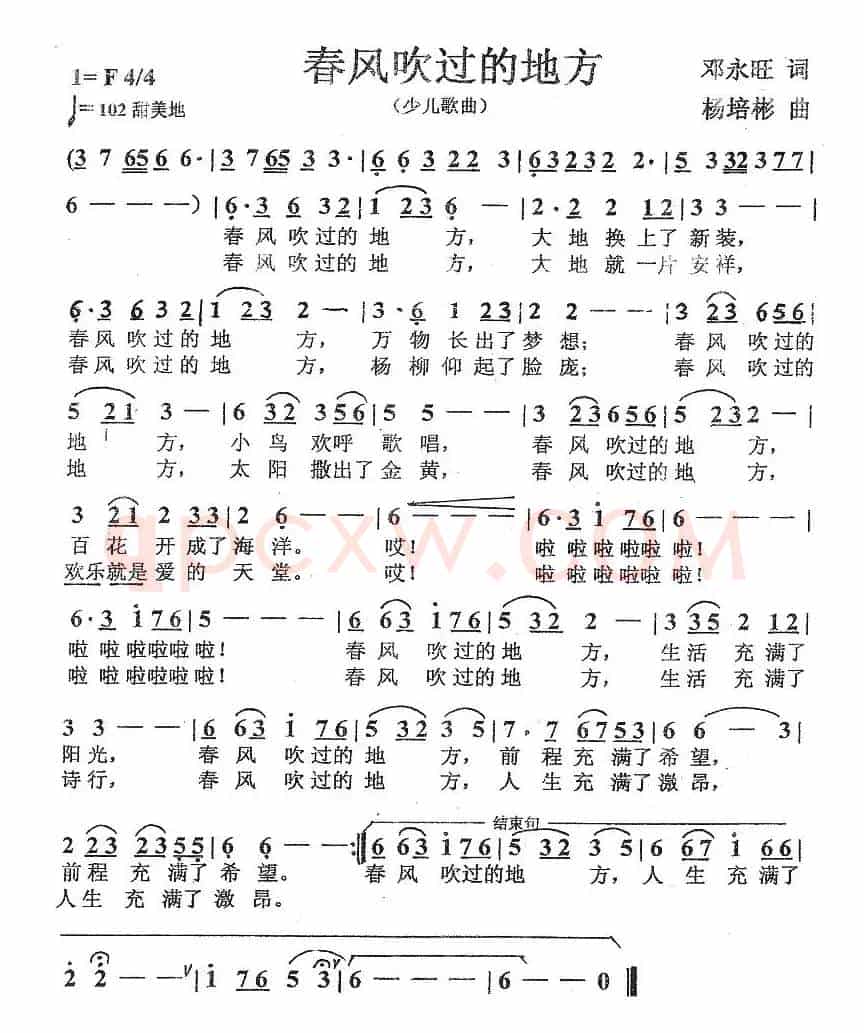 春风吹过的地方
1= F 4/4
邓永旺 词
♩= 102 甜美地
（少儿歌曲）
杨培彬 曲
(3 7 65 6 6· | 3 7 65 3 3· | 6 63 22 3 | 63232 2· | 5 3 32 377 |
6 — — —) | 6· 3 6 32 | 1 23 6 — | 2· 2 2 12 | 3 3 — — |
春风吹过的 地 方， 大 地 换 上了 新装，
春风吹过的 地 方， 大 地 就 一片 安祥，
6· 3 6 32 | 1 23 2 — | 3· 6 1 23 | 2 2 — — | 3 23 656 |
春风吹过的 地 方， 万 物 长 出了 梦 想； 春 风 吹过的
春风吹过的 地 方， 杨 柳 仰 起了 脸 庞； 春 风 吹过的
5 21 3 — | 6 32 356 | 5 5 — — | 3 23 656 | 5 23 2 — |
地 方， 小 鸟 欢呼 歌 唱， 春 风 吹过的 地 方，
地 方， 太 阳 撒出了 金 黄， 春 风 吹过的 地 方，
3 21 2 33 | 2 6 — — | 6 — — — | 6· 3 i 76 | 6 — — — |
百 花 开 成了 海 洋。 哎！ 啦 啦 啦啦啦 啦！
欢乐就是 爱 的 天 堂。 哎！ 啦 啦 啦啦啦 啦！
6· 3 i 76 | 5 — — — | 6 63 i 76 | 5 32 2 — | 3 35 2 12 |
啦 啦 啦啦啦 啦！ 春 风 吹过的 地 方， 生 活 充 满了
啦 啦 啦啦啦 啦！ 春 风 吹过的 地 方， 生 活 充 满了
3 3 — — | 6 63 i 76 | 5 32 3 5 | 7· 7 6753 | 6 6 — 3 |
阳 光， 春 风 吹过的 地 方， 前 程 充 满了 希 望，
诗 行， 春 风 吹过的 地 方， 人 生 充 满了 激 昂，
结束句
2 23 2355 | 6 6 — — :‖ 6 63 i 76 | 5 32 3 5 | 6 67 i 66 |
前 程 充 满了 希 望。 春 风 吹过的 地 方， 人 生 充 满了
人 生 充 满了 激 昂。
2 2 — — | i 76 5 3 | 6 — — — | 6 — — 0 ‖
qpcxw.com